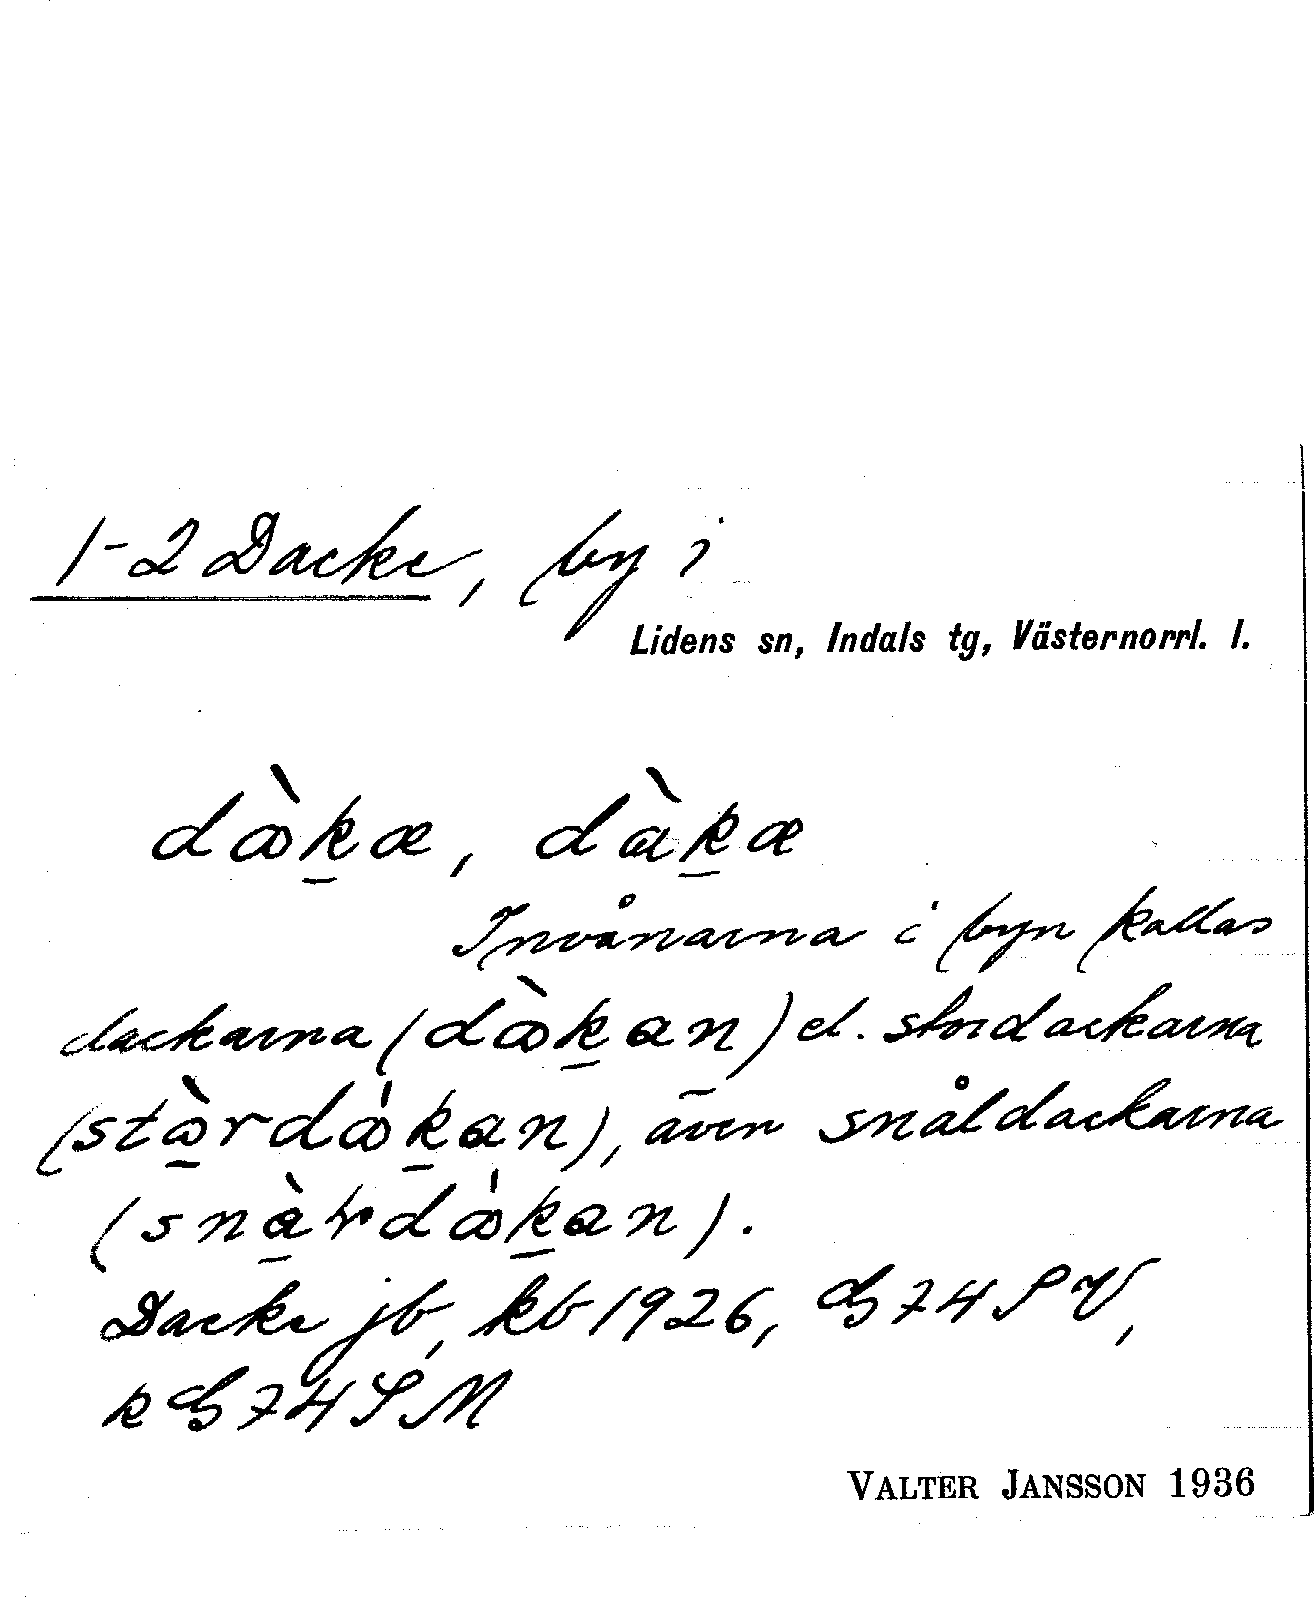 1-2 Dacke, by i
Lidens sn, Indals tg, Västernorrl. l.
dàk̠æ, dàk̠æ
Invånarna i byn kallas
dackarna (dàk̠an) el. stordackarna
(stà̠rdák̠an), även snåldackarna
(snà̠rdák̠an).
Dacke jb, kb 1926, G 74 SV,
k G 74 SM
VALTER JANSSON 1936